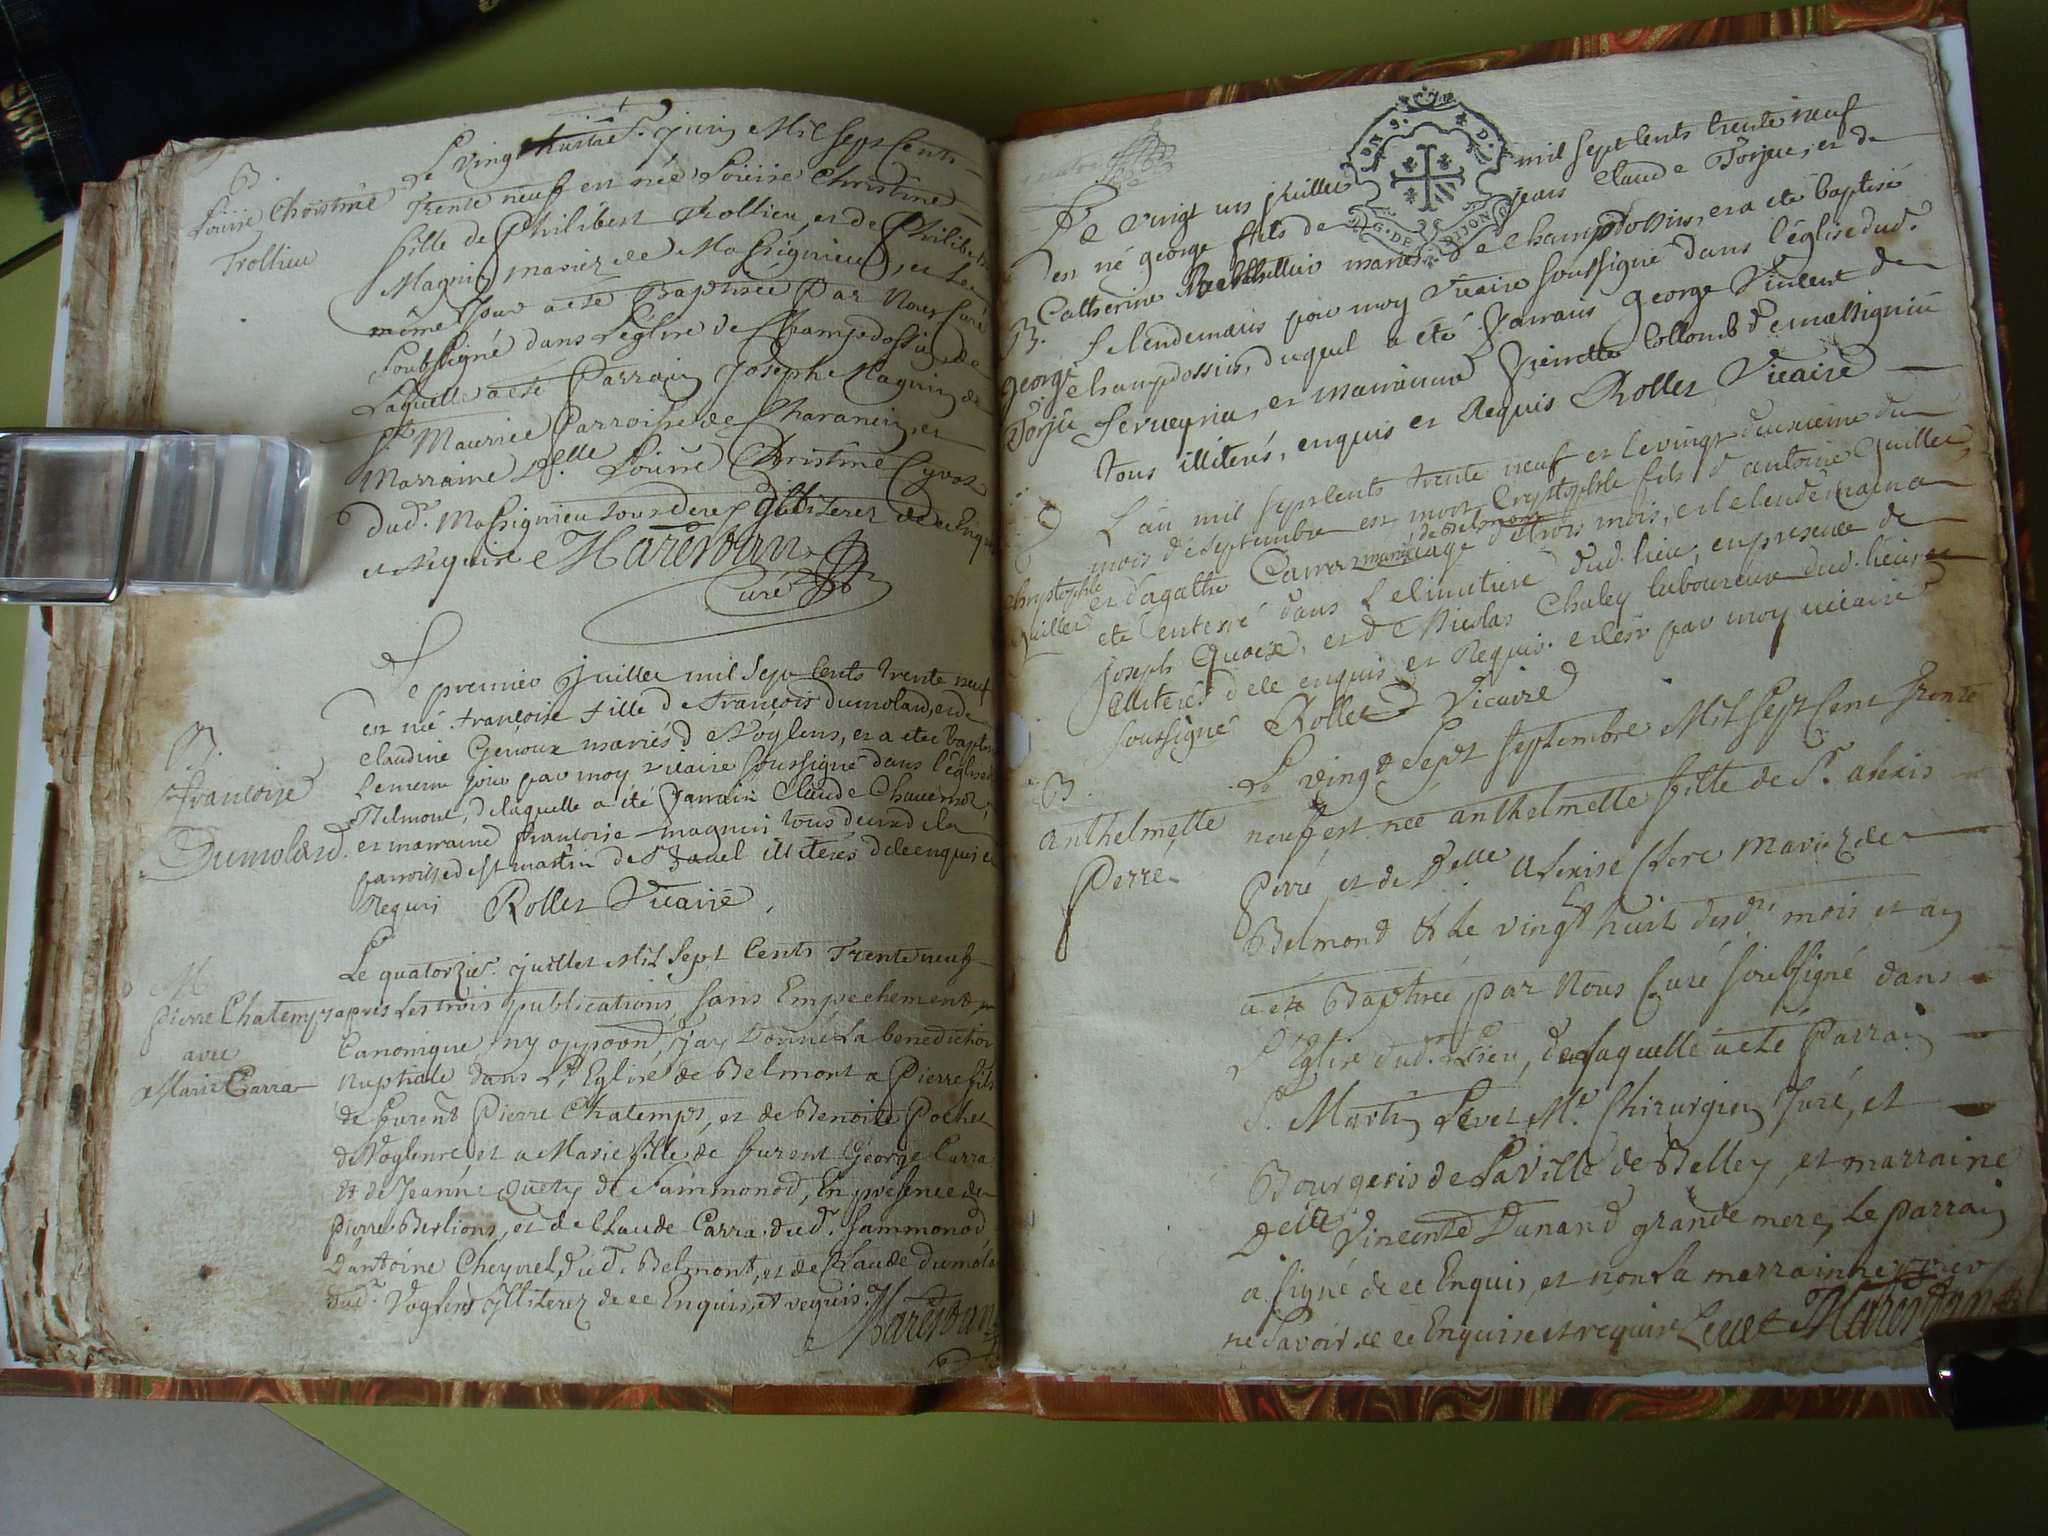 B.
Louise Christine
Trollieu
Le vingt huitie. juin Mil Sept Cents
Trente neuf est née Louise Christine
fille de Philibert Trollieu, et de Philiberte
Magnin mariez de Massignieu, et le
même jour a esté Baptisée Par Nous Curé
soubsigné dans L'église de Champdossin de
Laquelle a esté Parrain Joseph Magnin de
St. Maurice Parroisse de Charancin, et
Marraine Dlle. Louise Christine Cyvot
dud. Massignieu tous deux Illiterez de ce Enquis
et Requis
Marestan
Curé
B.
françoise
Dumolard.
Le premier juillet mil sept cents trente neuf
est née françoise fille de françois dumolard, et de
claudine Genoux mariés de Voglens, et a eté baptisée
le meme jour par moy vicaire soussigné dans l'église
Belmont, de laquelle a été parrain Claude Chavernot,
et marraine françoise magnin tous deux de la
parroisse de st martin de illiterés de ce enquis et
Requis Rollet Vicaire
M
Pierre Chatemps
avec
Marie Carra
Le quatorzie. juillet Mil Sept Cents Trente neuf
apres Les trois publications, sans Empechement
Canonique ny oppoond, j'ay Donné La benediction
Nuptiale dans L'Eglise de Belmont a Pierre fils
de furent Pierre Chatemps, et de Benoite Pochet
de Voglene, et a Marie fille de furent George Carra
Et de Jeanne Quety de Sammonod, En présence de
Pierre Berlions, et de Claude Carra dud. Sammonod
D'antoine Cheynel, dud. Belmont, et de Claude dumola
dud. Voglens illiterez de ce Enquis, et requis.
Marestan
G. DE DIJON
Le vingt un juillet mil sept cents trente neuf
est né george fils de jean claude Forjeu, et de
Catherine mariés de Champdossin, et a eté baptisé
B.
george
Forju
le lendemain par moy vicaire soussigné dans l'église dud.
champdossin, duquel a été parrain george Vincent de
Serveyrieu, et marraine Pierrette Collomb de massignieu
tous illiterés, enquis et Requis Rollet Vicaire
Chrystophle
quillet
L'an mil sept cents trente neuf et le vingt deuxieme du
mois de septembre est mort Crystophle fils d'antoine Quillet,
et d'agathe Carrer mariés de Belmont agé de trois mois, et le lendemain a
eté enterré dans le cimetiere dud. lieu, en presence de
joseph Quoex, et de Nicolas Chaley laboureur dud. lieu,
illiterés de ce enquis et Requis. et c'est par moy vicaire
soussigné Rollet Vicaire
B
anthelmette
Perre
Le vingt Sept Septembre Mil Sept Cent Trente
neuf, est née anthelmette fille de Sr. alexis
Perre, et de Delle Alexise Clerc Mariez de
Belmond & Le vingt huit desdts mois et an
a eté Baptisée par Nous Curé soubsigné dans
L'Eglise dud. Lieu, de Laquelle a eté Parrain
Sr. Martin Levet Me. Chirurgien Juré, et
Bourgeois de La Ville de Belley, et marraine
Delle Vincente Dunand grande mere, Le parrain
a signé de ce Enquis, et non La marrainne
ne Savoir de ce Enquise et requise Levet Marestan